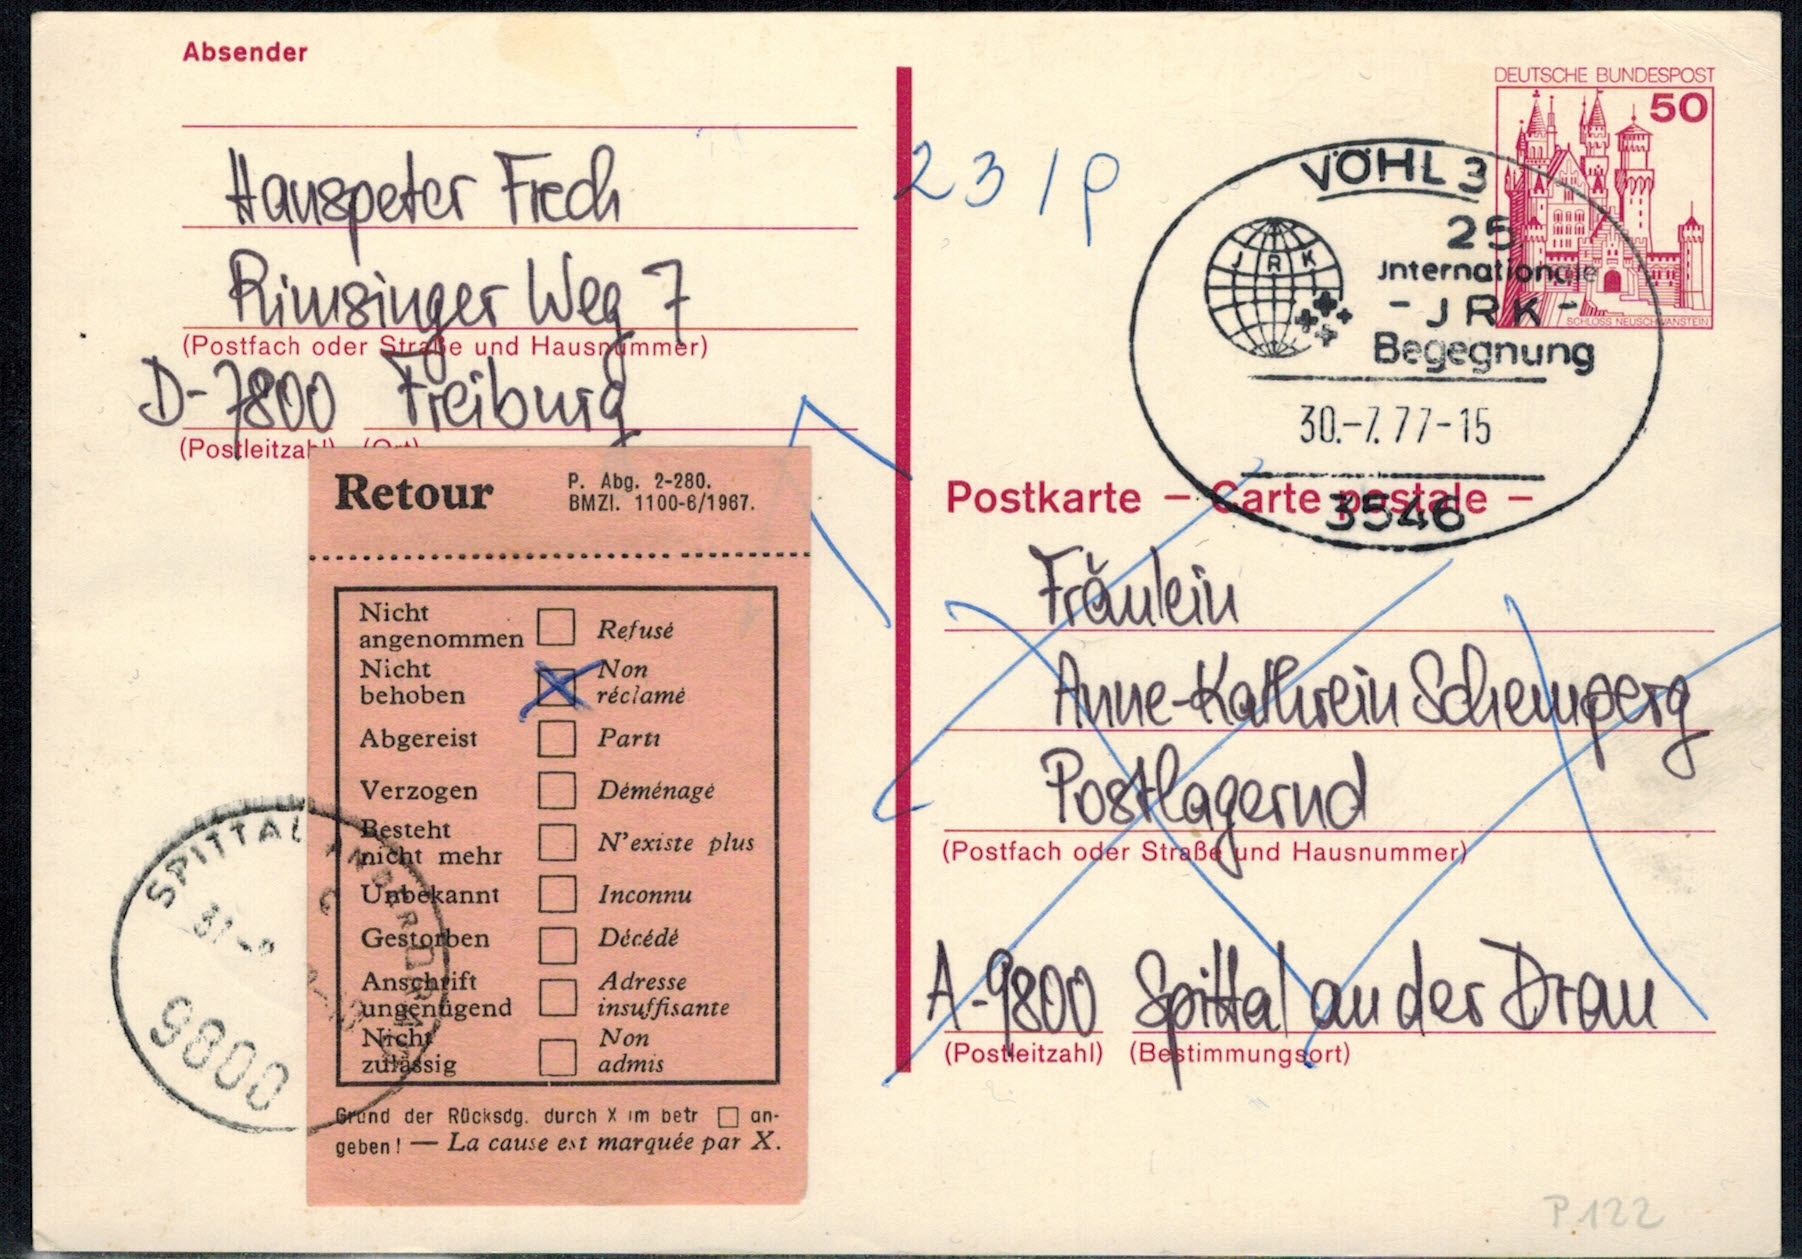 Absender
Hanspeter Frech
Rimsinger Weg 7
(Postfach oder Straße und Hausnummer)
D-7800 Freiburg
(Postleitzahl) (Ort)
23/p
DEUTSCHE BUNDESPOST
50
SCHLOSS NEUSCHWANSTEIN
VÖHL 3
25
JRK
Internationale
- JRK -
Begegnung
30.-7.77-15
3546
Postkarte – Carte postale –
Fräulein
Anne-Kathrein Schemperg
Postlagernd
(Postfach oder Straße und Hausnummer)
A-9800 Spittal an der Drau
(Postleitzahl) (Bestimmungsort)
Retour
P. Abg. 2-280.
BMZl. 1100-6/1967.
Nicht
angenommen Refusé
Nicht Non
behoben réclamé
Abgereist Parti
Verzogen Déménagé
Besteht
nicht mehr N'existe plus
Unbekannt Inconnu
Gestorben Décédé
Anschrift Adresse
ungenügend insuffisante
Nicht Non
zulässig admis
Grund der Rücksdg. durch X im betr □ an-
geben! — La cause est marquée par X.
SPITTAL
31-
9800
P 122